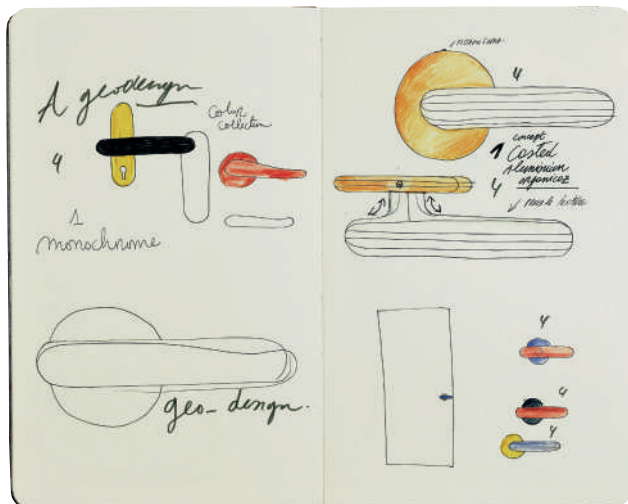 A geodesign
Color
collection
4
1
monochrome
geo_design.
4
concept
1 Casted
Aluminium
organicoz
4
4
4
4